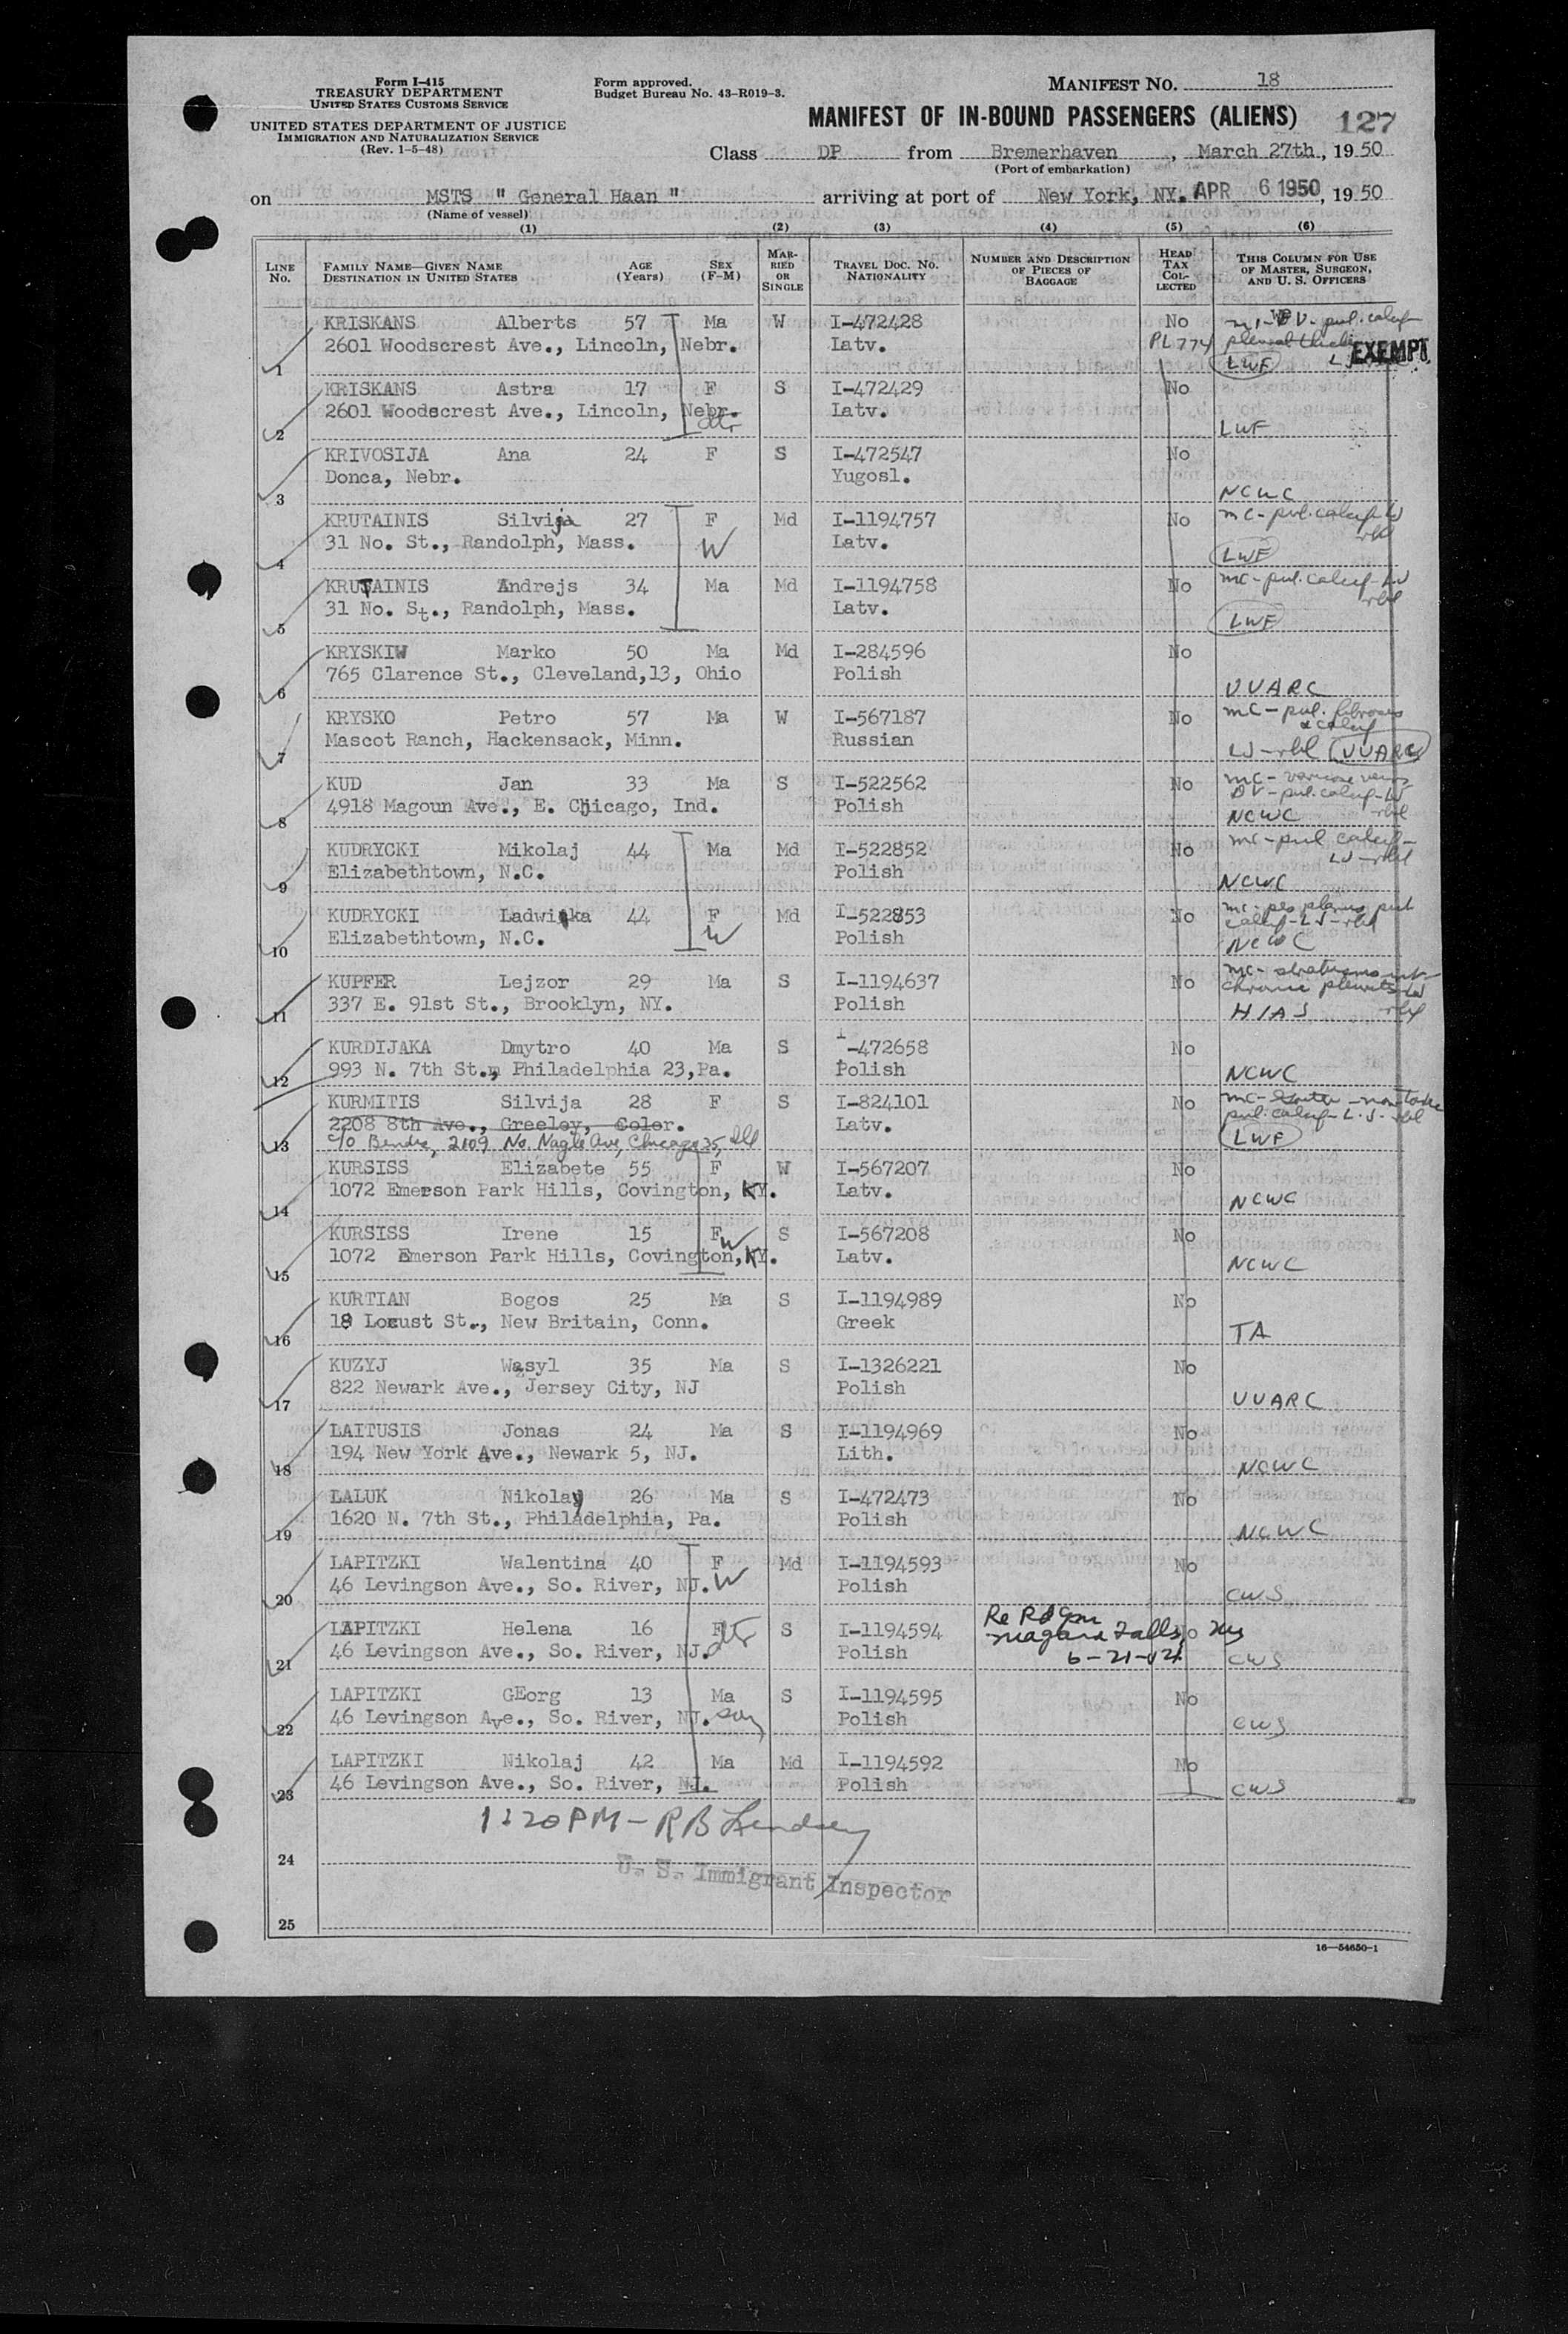 Form I-415
TREASURY DEPARTMENT
UNITED STATES CUSTOMS SERVICE
UNITED STATES DEPARTMENT OF JUSTICE
IMMIGRATION AND NATURALIZATION SERVICE
(Rev. 1-5-48)
Form approved.
Budget Bureau No. 43-R019-3.
MANIFEST NO. 18
MANIFEST OF IN-BOUND PASSENGERS (ALIENS) 127
Class DP from Bremerhaven, March 27th, 1950
(Port of embarkation)
on MSTS " General Haan " arriving at port of New York, NY. APR 6 1950, 1950
(Name of vessel)
(1) (2) (3) (4) (5) (6)
LINE NO. FAMILY NAME—GIVEN NAME DESTINATION IN UNITED STATES AGE (Years) SEX (F-M) MARRIED OR SINGLE TRAVEL DOC. NO. NATIONALITY NUMBER AND DESCRIPTION OF PIECES OF BAGGAGE HEAD TAX COLLECTED THIS COLUMN FOR USE OF MASTER, SURGEON, AND U. S. OFFICERS
1 KRISKANS Alberts 57 Ma W I-472428 No
2601 Woodscrest Ave., Lincoln, Nebr. Latv. PL774 EXEMPT.
LWF
2 KRISKANS Astra 17 F S I-472429 No
2601 Woodscrest Ave., Lincoln, Nebr. dtr Latv. LWF
3 KRIVOSIJA Ana 24 F S I-472547 No
Donca, Nebr. Yugosl. NCWC
4 KRUTAINIS Silvija 27 F Md I-1194757 No mc-pul. calcif-LJ rbl
31 No. St., Randolph, Mass. W Latv. LWF
5 KRUTAINIS Andrejs 34 Ma Md I-1194758 No mc-pul. calcif-LJ rbl
31 No. St., Randolph, Mass. Latv. LWF
6 KRYSKIW Marko 50 Ma Md I-284596 No
765 Clarence St., Cleveland,13, Ohio Polish UUARC
7 KRYSKO Petro 57 Ma W I-567187 No mc-pul. fibrosis & calcif
Mascot Ranch, Hackensack, Minn. Russian LJ-rbl UUARC
8 KUD Jan 33 Ma S I-522562 No mc-varicose veins
4918 Magoun Ave., E. Chicago, Ind. Polish pul. calcif-LJ rbl
NCWC
9 KUDRYCKI Mikolaj 44 Ma Md I-522852 No mc-pul calcif-LJ-rbl
Elizabethtown, N.C. Polish NCWC
10 KUDRYCKI Ladwika 44 F Md I-522853 No mc-pes planus pul calcif-LJ-rbl
Elizabethtown, N.C. W Polish NCWC
11 KUPFER Lejzor 29 Ma S I-1194637 No
337 E. 91st St., Brooklyn, NY. Polish HIAS
12 KURDIJAKA Dmytro 40 Ma S I-472658 No
993 N. 7th St., Philadelphia 23,Pa. Polish NCWC
13 KURMITIS Silvija 28 F S I-824101 No mc-Goiter-non toxic
2208 8th Ave., Greeley, Color. Latv. pul. calcif-L.J-rbl
c/o Bendze, 2109 No. Nagle Ave, Chicago 35, Ill LWF
14 KURSISS Elizabete 55 F W I-567207 No
1072 Emerson Park Hills, Covington, KY. Latv. NCWC
15 KURSISS Irene 15 F S I-567208 No
1072 Emerson Park Hills, Covington,KY. Latv. NCWC
16 KURTIAN Bogos 25 Ma S I-1194989 No
18 Locust St., New Britain, Conn. Greek TA
17 KUZYJ Wasyl 35 Ma S I-1326221 No
822 Newark Ave., Jersey City, NJ Polish UUARC
18 LAITUSIS Jonas 24 Ma S I-1194969 No
194 New York Ave., Newark 5, NJ. Lith. NCWC
19 LALUK Nikolay 26 Ma S I-472473 No
1620 N. 7th St., Philadelphia, Pa. Polish NCWC
20 LAPITZKI Walentina 40 F Md I-1194593 No
46 Levingson Ave., So. River, NJ. W Polish CWS
21 LAPITZKI Helena 16 F dtr S I-1194594 No
46 Levingson Ave., So. River, NJ. Polish Niagara Falls, NY CWS
22 LAPITZKI GEorg 13 Ma S I-1194595 No
46 Levingson Ave., So. River, NJ. son Polish CWS
23 LAPITZKI Nikolaj 42 Ma Md I-1194592 No
46 Levingson Ave., So. River, NJ. Polish CWS
1:20PM - RB Lindsey
24 U. S. Immigrant Inspector
25
16—54650-1